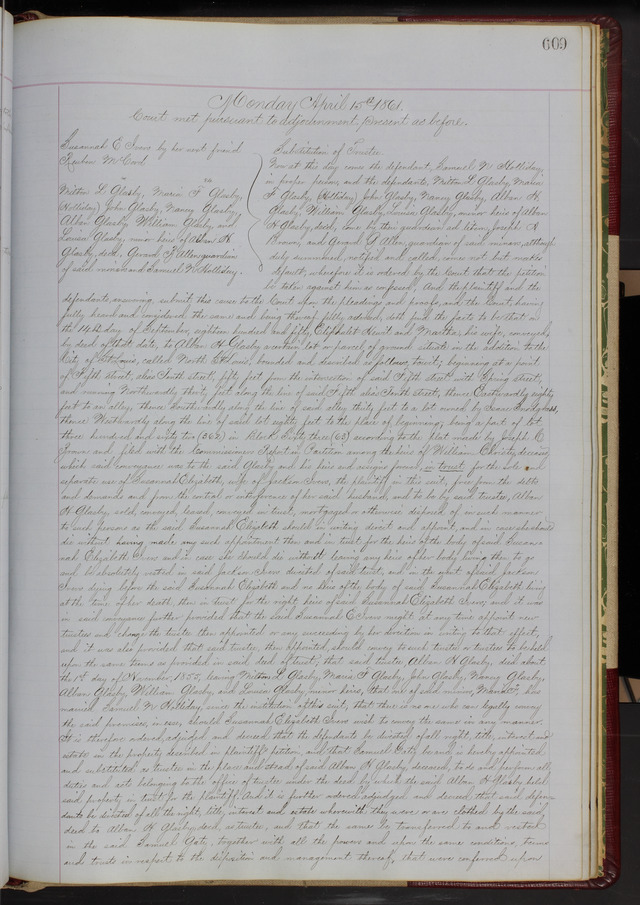 609
Monday April 15th 1861.
Court met pursuant to adjournment, present as before.
Susannah E Irons by her next friend
Reuben McCord
vs
Milton L Glasby, Maria F Glasby,
(Holliday) John Glasby, Nancy Glasby,
Alban Glasby William Glasby and
Louisa Glasby, minor heirs of Alban H
Glasby, decd, Gerard F Allen guardian
of said minors and Samuel N Holliday.
Substitution of Trustee.
Now at this day come the defendant, Samuel N Holliday,
in proper person, and the defendants, Milton L Glasby, Maria
F Glasby, (Holliday) John Glasby, Nancy Glasby, Alban H
Glasby, William Glasby, Louisa Glasby, minor heirs of Alban
H Glasby, decd, come by their guardian ad litem, Joseph K
and Gerard F Allen, guardian of said minors, although
duly summoned, notified and called, comes not but makes
default, wherefore it is ordered by the Court that the petition
be taken against him as confessed, And the plaintiff and the
defendants, answering, submit this cause to the Court upon the pleadings and proofs, and the Court, having
fully heard and considered the same and being thereof fully advised, doth find the facts to be that on
the 14th day of September, eighteen hundred and fifty, and Martha, his wife, conveyed
by deed of that date, to Alban H Glasby a certain lot or parcel of ground situate in the addition to the
City of St Louis, called North St Louis, bounded and described as follows, towit; beginning at a point
of Fifth street, alias Tenth street, fifty feet from the intersection of said Fifth street with street,
and running Northwardly thirty feet along the line of said Fifth alias Tenth street, thence Eastwardly eighty
feet to an alley, thence Southwardly along the line of said alley thirty feet to a lot owned by Isaac
thence Westwardly along the line of said lot eighty feet to the place of beginning, being a part of lot
three hundred and sixty two (362) in Block Sixty three (63) according to the plat made by Joseph C
and filed with the Commissioners Report in Partition among the heirs of William Christy, deceased,
which said conveyance was to the said Glasby and his heirs and assigns forever, in trust, for the sole and
separate use of Susannah Elizabeth, wife of Jackson Irons, the plaintiff in this suit, free from the debts
and demands and from the control or interference of her said husband, and to be by said trustee, Alban
H Glasby, sold, conveyed, leased, conveyed in trust, mortgaged or otherwise disposed of in such manner
to such persons as the said Susannah Elizabeth should in writing direct and appoint, and in case she should
die without having made any such appointment then and in trust for the heirs of the body of said Susan-
nah Elizabeth Irons and in case she should die without leaving any heirs of her body living then to go
and be absolutely vested in said Jackson Irons divested of said trust, and in the event of said Jackson
Irons dying before the said Susannah Elizabeth and no heirs of the body of said Susannah Elizabeth being
at the time of her death, then in trust for the right heirs of said Susannah Elizabeth Irons; and it was
in said conveyance further provided that the said Susannah E Irons might at any time appoint new
trustees and change the trustee then appointed or any succeeding by her direction in writing to that effect,
and it was also provided that said trustee, then appointed, should convey to such trustee or trustees to be held
upon the same terms as provided in said deed of trust; that said trustee Alban H Glasby, died about
the 1st day of November, 1855, leaving Milton L Glasby, Maria F Glasby, John Glasby, Nancy Glasby,
Alban Glasby, William Glasby, and Louisa Glasby, minor heirs, that one of said minors, Maria F, has
married Samuel N Holliday, since the institution of this suit, that there is no one who can legally convey
the said premises, in case, should Susannah Elizabeth Irons wish to convey the same in any manner.
It is therefore ordered, adjudged and decreed that the defendants be divested of all right, title, interest and
estate in the property described in plaintiff's petition, and that Samuel Gaty be and is hereby appointed
and substituted as trustee in the place and stead of said Alban H Glasby, deceased, to do and perform all
duties and act belonging to the office of trustee under the deed by which the said Alban H Glasby, held
said property in trust for the plaintiff. And it is further ordered, adjudged and decreed, that said defen-
dants be divested of all the right, title, interest and estate wherewith they were or are clothed by the said
deed to Alban H Glasby, decd, as trustee, and that the same be transferred to and vested
in the said Samuel Gaty, together with all the powers and upon the same conditions, terms
and trusts in respect to the disposition and management thereof, that were conferred upon